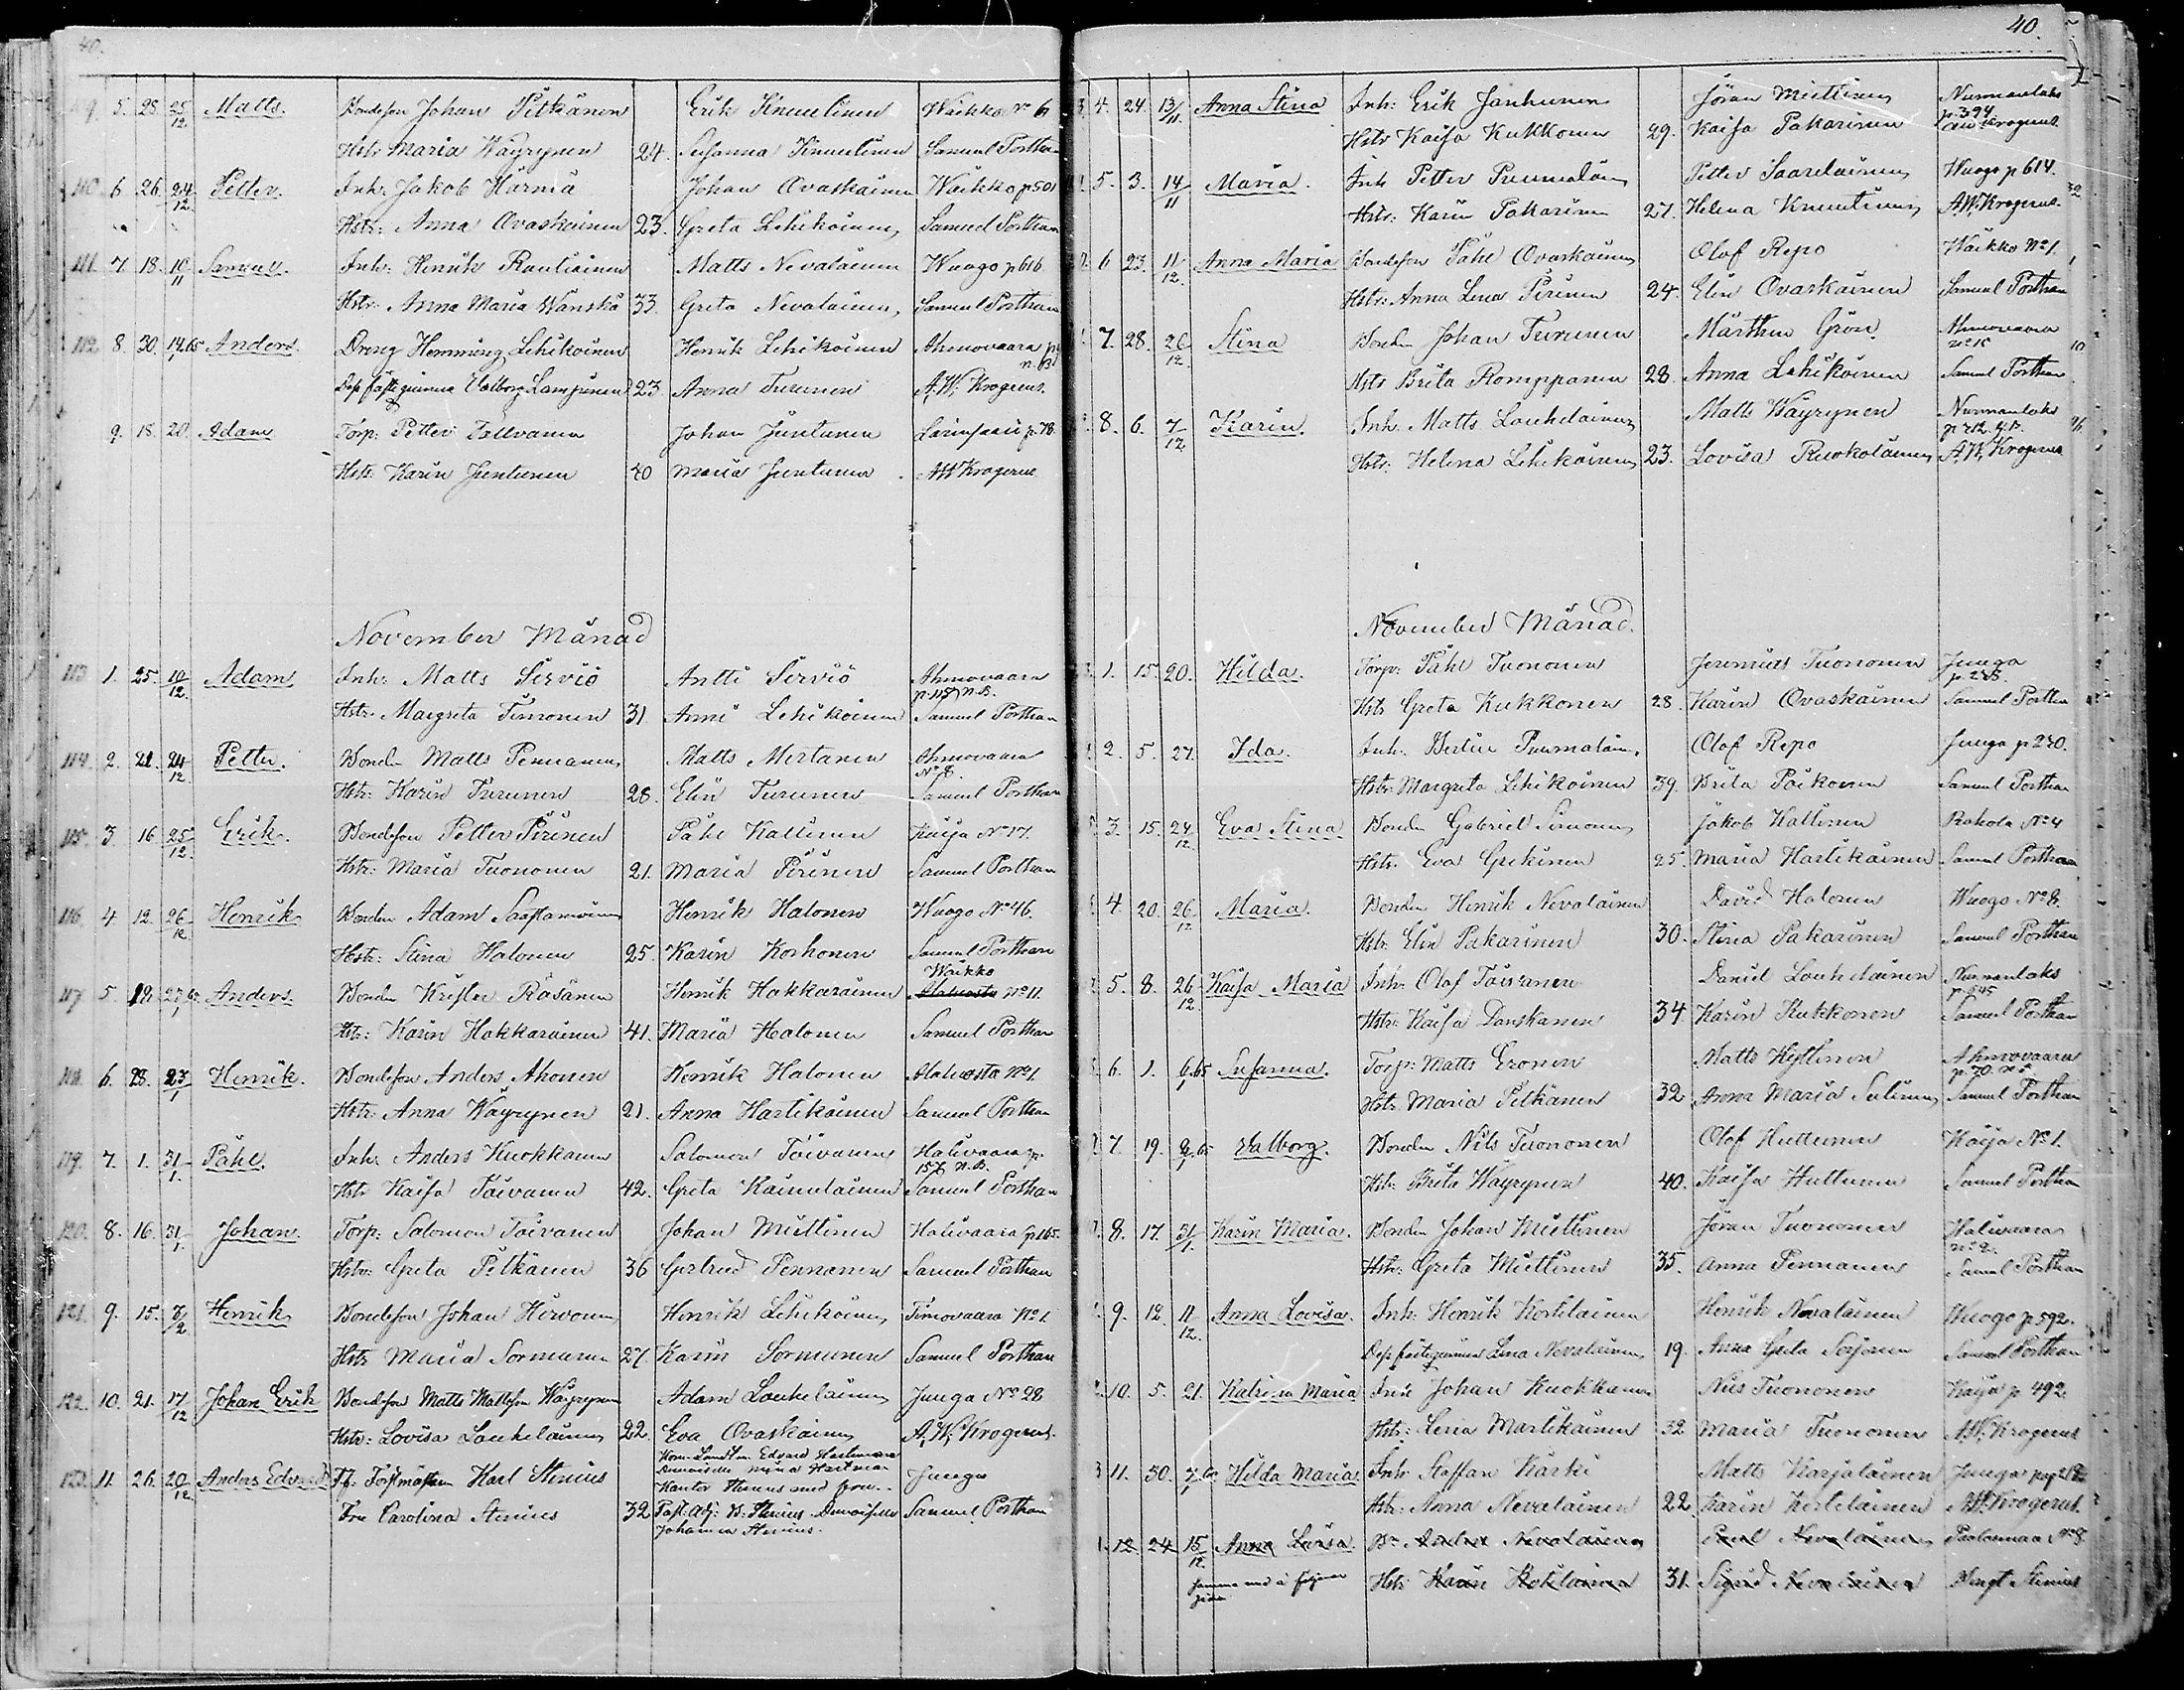 40.
5. 28. 25/12 Matts. Bondeson Johan Pitkänen Erik Kinnulinen Waikko No 6
Hstr Maria Wäyrynen 24. Susanna Kinnulinen Samuel Porthan
110 6 26. 24/12 Petter. Inh: Jakob Härmä Johan Ovaskainen Waikko p 501
Hstr: Anna Ovaskainen 23. Greta Lehikoinen Samuel Porthan
111. 7. 18. 10/11 Samuel. Inh: Henrik Rautiainen Matts Nevalainen Wuogo p 616
Hstr: Anna Maria Wänskä 33. Greta Nevalainen, Samuel Porthan
112. 8. 30. 14/1 65 Anders. Dreng Hemming Lehikoinen Henrik Lehikoinen Ahmovaara
Valborg 23. Anna Turunen A. W. Krogerus.
9. 18. 20. Adam Torp: Petter Tallvanen Johan Juntunen p. 78.
Hstr: Karin Juntunen 40 Maria Juntunen. AW Krogerus
November Månad
113. 1. 25. 10/12. Adam Inh: Matts Sirviö Antti Sirviö Ahmovaara
p. 115 n. B.
Hstr. Margreta Timonen 31. Anni Lehikoinen Samuel Porthan
114. 2. 21. 24/12 Petter. Bonden Matts Pennanen Matts Mertanen Ahmovaara
No 8.
Hstr: Karin Turunen 28. Elin Turunen Samuel Porthan
115. 3. 16. 25/12. Erik. Bondeson Petter Piirinen Påhl Kallinen Kaija No 17.
Hstr: Maria Tuononen 21. Maria Piirinen Samuel Porthan
116. 4. 12. 26/12 Henrik Bonden Adam Saastamoinen Henrik Halonen Wuogo No 46.
Hstr: Stina Halonen 25. Karin Korhonen Samuel Porthan
Waikko
117 5. 19. 27/1 65 Anders. Bonden Krister Räsänen Henrik Hakkarainen No 11.
Hstr: Karin Hakkarainen 41. Maria Halonen Samuel Porthan
118. 6. 28. 23/1 Henrik. Bondeson Anders Ahonen Henrik Halonen Alahuosta No 1.
Hstr: Anna Wäyrynen 21. Anna Hartikainen Samuel Porthan
119. 7. 1. 31/1. Påhl. Inh: Anders Kuokkanen Salomon Toivanen Halivaara p.
157 n. B.
Hstr Kaisa Toivanen 42. Greta Kainulainen Samuel Porthan
120. 8. 16. 31/1. Johan. Torp: Salomon Toivanen Johan Miettinen Halivaara p 165.
Hstr: Greta Pitkänen 36 Gertrud Pennanen Samuel Porthan
121. 9. 15. 3/2 Henrik Bondeson Johan Hirvonen Henrik Lehikoinen Timovaara No 1.
Hstr Maria Sormunen 27. Karin Sormunen Samuel Porthan
122. 10. 21. 17/12 Johan Erik Bondeson Matts Mattsson Wäyrynen Adam Louhelainen Juuga No 28
Hstr: Lovisa Louhelainen 22. Eva Ovaskainen A. W. Krogerus.
Edvard
Hartman
123. 11. 26. 20/12 Anders Edvard Karl Stenius Kantor Stenius med fru Juuga
Fru Carolina Stenius 32 Past. Adj: B: Stenius Samuel Porthan
Johanna Stenius.
40.
4. 24. 13/11. Anna Stina Inh: Erik Janhunen Jöran Miettinen Nurmanlaks
p. 394
Hstr Kaisa Kukkonen 29. Kaisa Pakarinen AW Krogerus.
5. 3. 14/11 Maria. Inh Petter Purmalain Petter Saarelainen Wuogo p 614.
Hstr: Karin Pakarinen 27. Helena Knuutinen A. W. Krogerus.
6 23. 11/12. Anna Maria Bondeson Påhl Ovaskainen Olof Repo Waikko No 1.
Hstr: Anna Lena Pirinen 24. Elin Ovaskainen Samuel Porthan
7. 28. 26/12 Stina Bonden Johan Turunen Mårthen Grön Ahmovaara
Hstr Brita Romppanen 28. Anna Lehikoinen Samuel Porthan
8. 6. 7/12 Karin. Inh. Matts Louhelainen Matts Wäyrynen Nurmanlaks
Hstr: Helena Lehikoinen 23. Lovisa Ruokolainen A. W. Krogerus
November Månad.
1. 15. 20. Hilda. Torp: Påhl Tuononen Jeremias Tuononen Juuga
p. 288.
Hstr Greta Kukkonen 28. Karin Ovaskainen Samuel Porthan
2. 5. 27. Ida. Inh: Bertil Purmalain. Olof Repo Juuga p 230.
Hstr: Margreta Lehikoinen 39. Brita Poikonen Samuel Porthan
3. 15. 24/12. Eva Stina Bonden Gabriel Simonen Jakob Kallinen Rahola No 4
Hstr: Eva Gerkinen 25. Maria Hartikainen Samuel Porthan
4. 20. 26/12 Maria. Bonden Henrik Nevalainen David Halonen Wuogo No 8.
Hstr: Elin Pakarinen 30. Stina Pakarinen Samuel Porthan
5. 8. 26/12 Kaisa Maria Inh: Olof Toivanen Daniel Louhelainen Nurmanlaks
p. 545
Hstr: Kaisa Danskanen 34 Karin Kukkonen Samuel Porthan
6. 1. 6/1 65 Susanna. Torp: Matts Eronen Matts Kyllinen Ahmovaara
p. 70. n B.
Hstr. Maria Pitkänen 32. Anna Maria Sulinen Samuel Porthan
7. 19. 9/1 65 Valborg. Bonden Nils Tuononen Olof Huttunen Kaija No 1.
Hstr: Brita Wäyrynen 40. Kaisa Huttunen Samuel Porthan
8. 17. 31/1. Karin Maria. Bonden Johan Miettinen Jöran Tuononen Halivaara
No 2.
Hstr: Greta Miettinen 35. Anna Pennanen Samuel Porthan
9. 12. 11/12. Anna Lovisa. Inh: Henrik Kortelainen Henrik Nevalainen Wuogo p 592.
Lena Nevalainen 19. Anna Greta Sorjonen Samuel Porthan
10. 5. 21. Katrina Maria Inh: Johan Kuokkanen Nils Tuononen Kaija p 492.
Hstr: Lena Martikainen 32 Maria Tuononen A. W. Krogerus
11. 30. 7/1 65 Hilda Maria Inh: Staffan Kärki Matts Karjalainen Juuga pag 212
Hstr: Anna Nevalainen 22. Karin Kortelainen A. W. Krogerus.
12. 24 15/12. Anna Lovisa. Bn Nevalainen Paul Nevalainen No 8
Hstr Karin 31. Sigrid Nevalainen Bengt Stenius